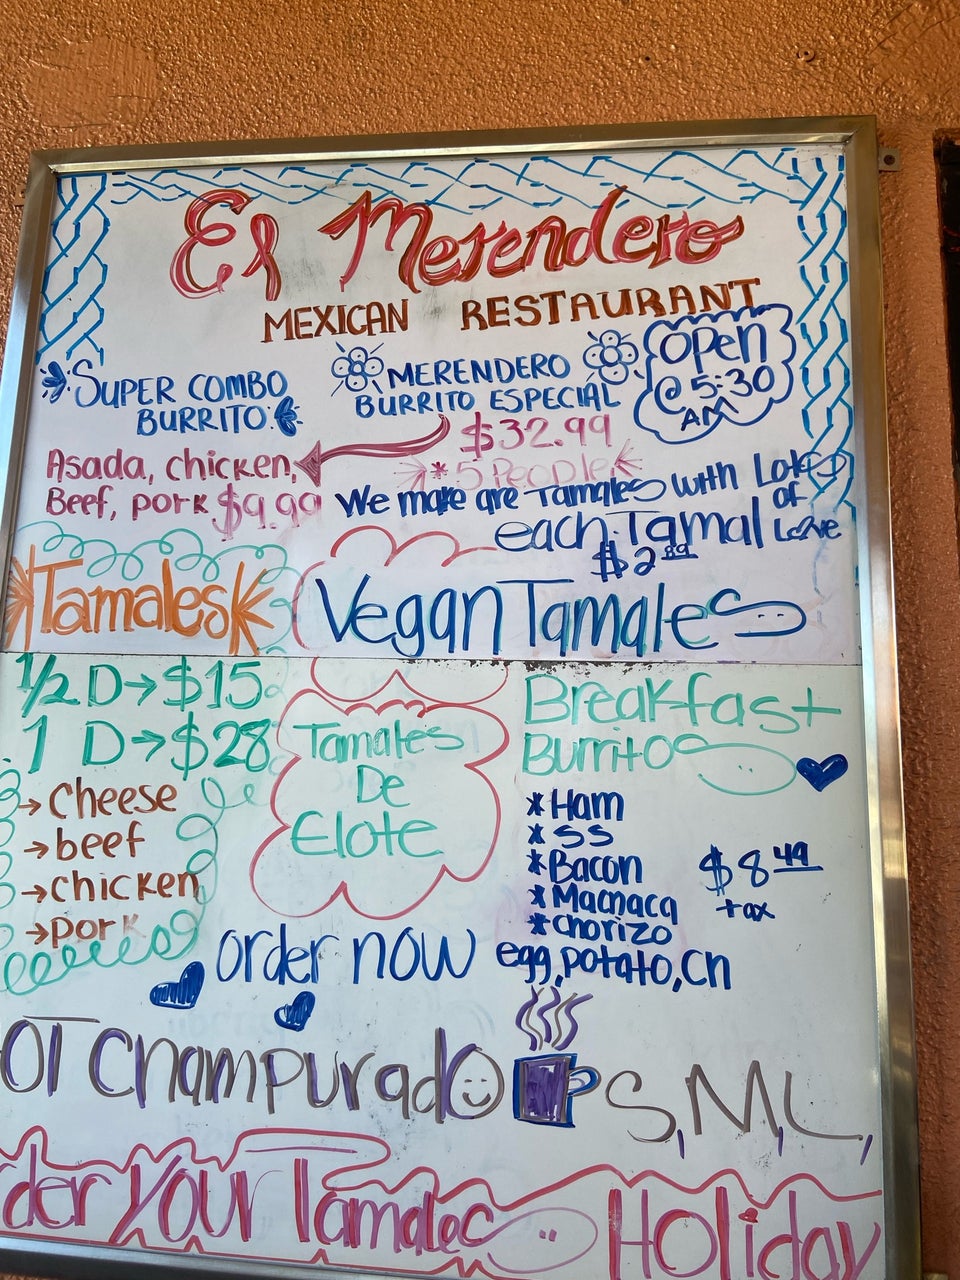 El Merendero
MEXICAN RESTAURANT
OPEN
@ 5:30
AM
SUPER COMBO
BURRITO
Asada, chicken,
Beef, pork $9.99
MERENDERO
BURRITO ESPECIAL
$32.99
*5 People
We make are Tamales with Lots
of
Love
each Tamal
$2.89
Tamales
1/2 D→$15
1 D→$28
→Cheese
→beef
→chicken
→pork
Vegan Tamales
Tamales
De
Elote
Breakfast
Burritos
*Ham
*SS
*Bacon
*Machaca
*Chorizo
egg, potato, Ch
$8.49
+ax
order now
OT Champurado S, M, L,
der your Tamales Holiday